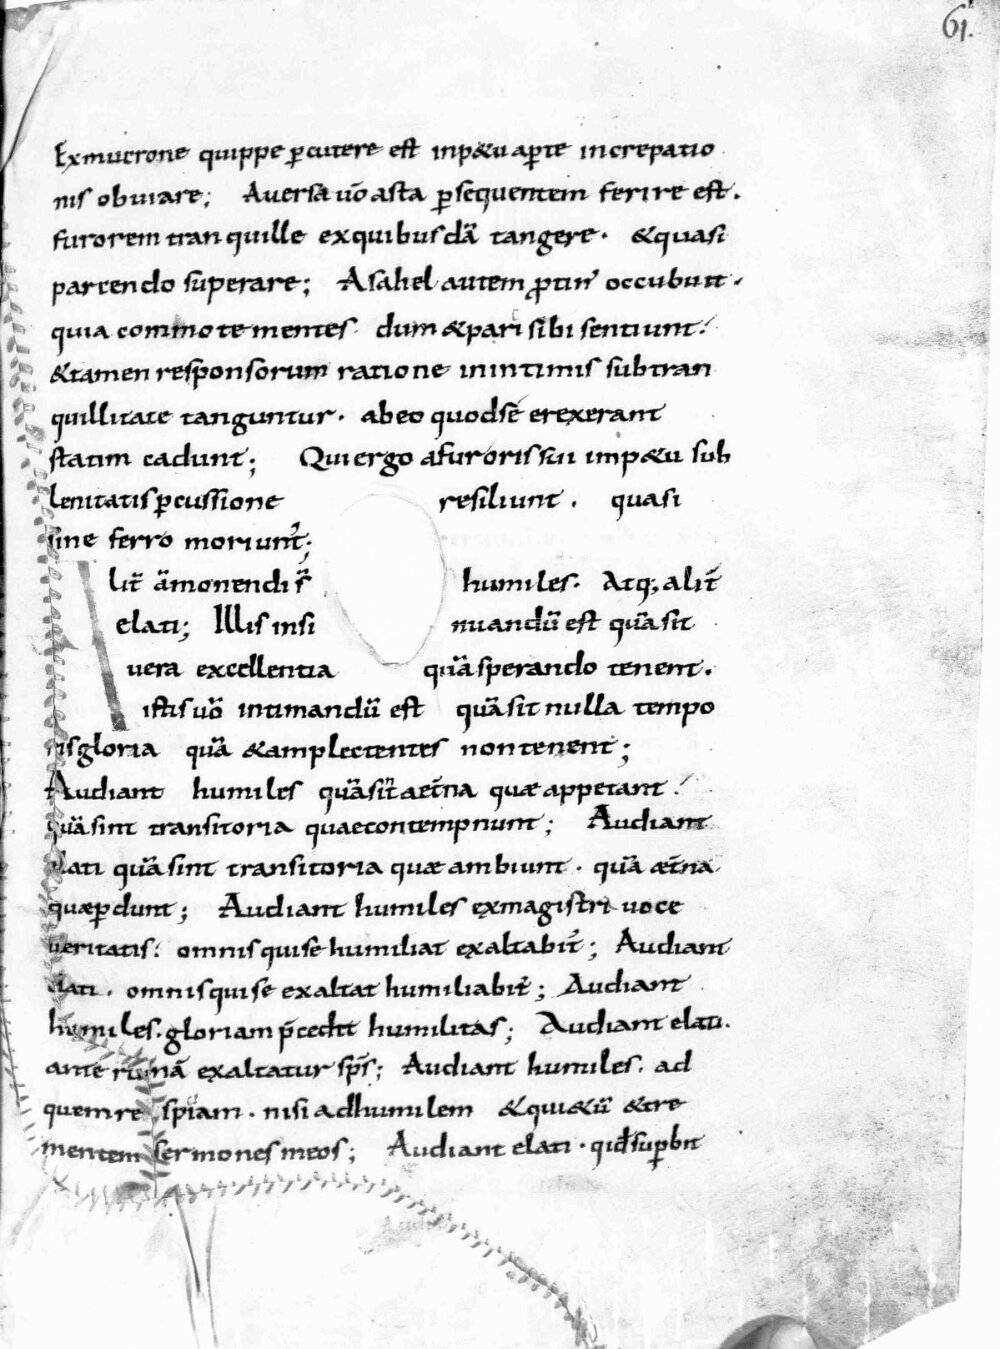 61.
Exmucrone quippe p̱cutere est inp&u ap̱te increpatio
nis obuiare; Auersa uō asta p̱sequentem ferire est.
furorem tranquille exquibusdā tangere. &quasi
parcendo superare; Asahel autem ꝓtin' occubuit.
quia commote mentes dum &pari sibi sentiunt.
&tamen responsorum ratione inintimis subtran
quillitate tanguntur. abeo quodsē erexerant
statim cadunt; Qui ergo afuroris sui imp&u sub
lenitatis p̱cussione resiliunt. quasi
sine ferro moriunt̄;
Alit̄ āmonendi s̄ humiles. Atq; alit̄
elati; Illis insinuandū est quā sit
uera excellentia quā sperando tenent.
istis uō intimandū est quā sit nulla tempo
ris gloria quā &amplectentes non tenent;
Audiant humiles quā sin̄t aet̄na quae appetant.
quā sint transitoria quae contempnunt; Audiant
elati quā sint transitoria quae ambiunt. quā aet̄na
quaep̱dunt; Audiant humiles exmagistri uoce
ueritatis. omnis quise humiliat exaltabit̄; Audiant
elati. omnis quise exaltat humiliabit̄; Audiant
humiles. gloriam p̄cedit humilitas; Audiant elati.
ante ruinā exaltatur sp̄s; Audiant humiles. ad
quem respiciam. nisi adhumilem &qui&ū &tre
mentem sermones meos; Audiant elati. qid sup̱bit